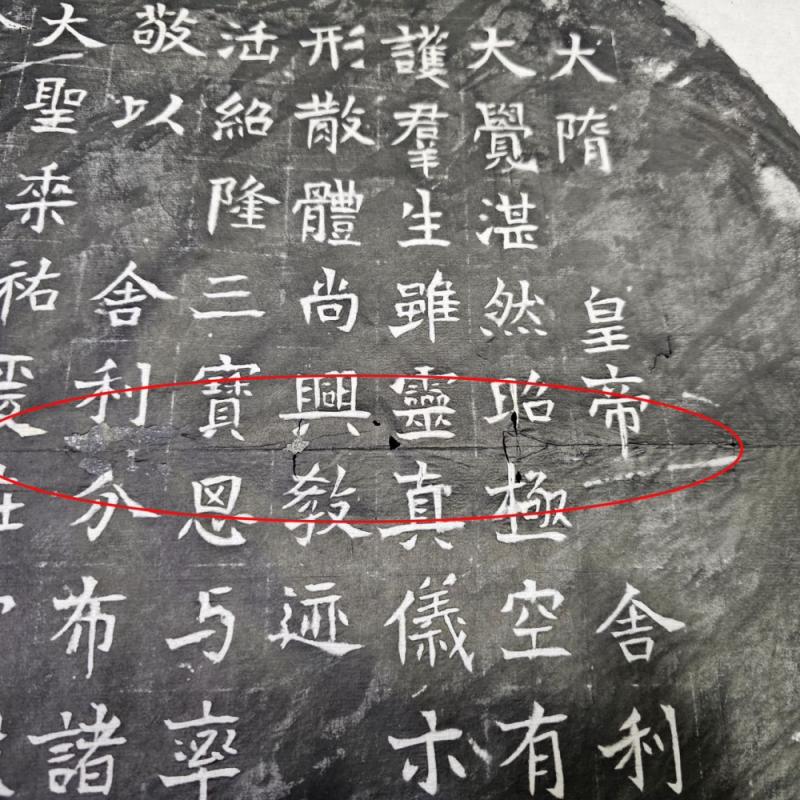 大隋皇帝舍利
大覺湛然昭極空有
護羣生雖靈真儀示
形散體尚興教迹
活紹隆三寶恩与率
敬以舍利分布諸
大聖垂祐